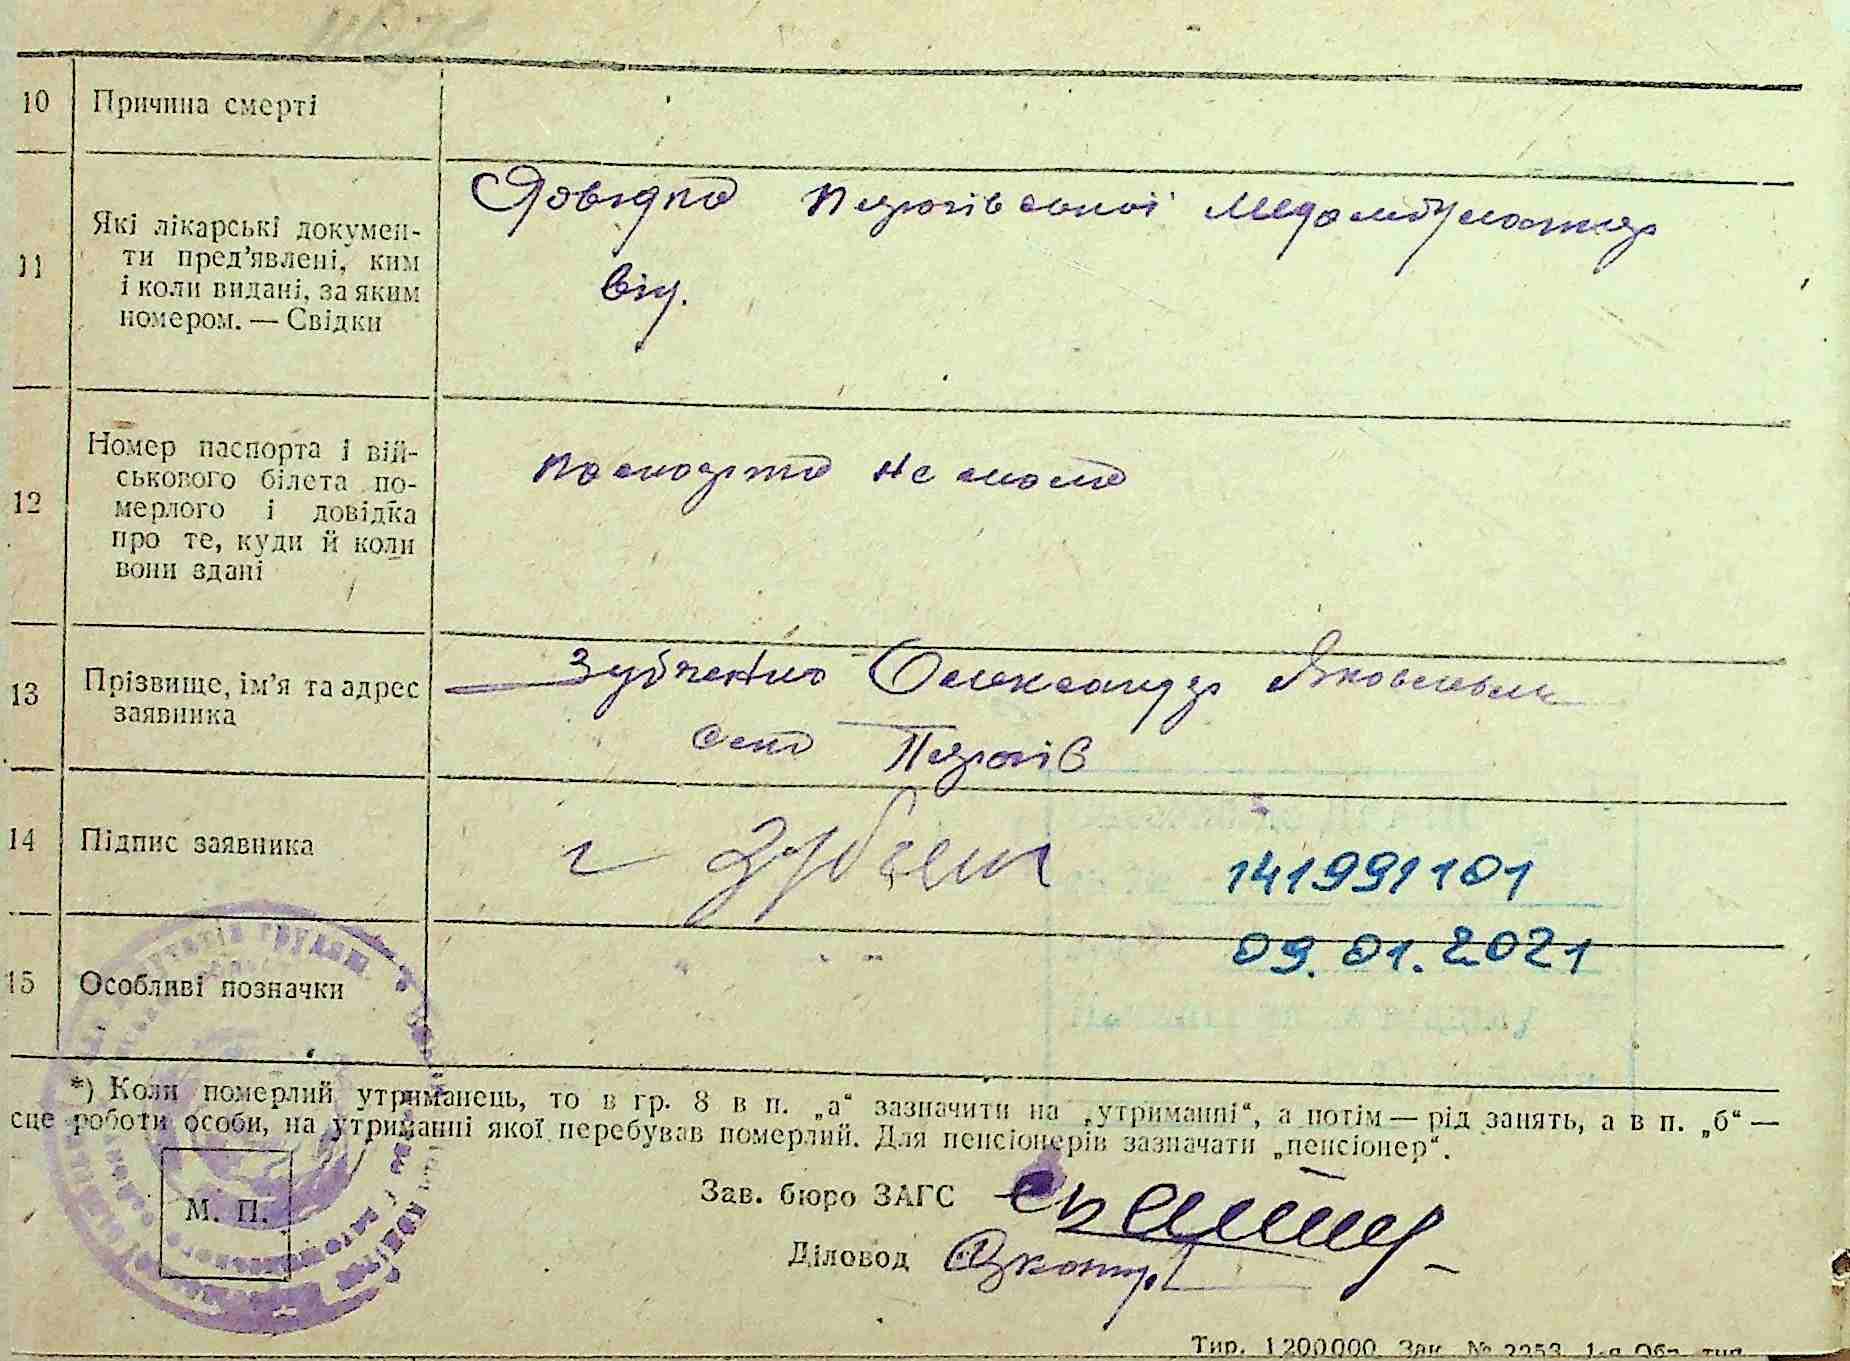 10 Причина смерті
11 Які лікарські докумен-
ти пред'явлені, ким
і коли видані, за яким
номером. — Свідки
Довідка Пирогівської Медамбулаторії
від.
12 Номер паспорта і вій-
ськового білета по-
мерлого і довідка
про те, куди й коли
вони здані
паспорта не мала
13 Прізвище, ім'я та адрес
заявника
Зубченко Олександр Яковлевич
село Пирогів
14 Підпис заявника
141991101
09.01.2021
15 Особливі позначки
*) Коли померлий утриманець, то в гр. 8 в п. „а“ зазначити на „утриманні“, а потім — рід занять, а в п. „б“ —
сце роботи особи, на утриманні якої перебував померлий. Для пенсіонерів зазначати „пенсіонер“.
М. П.
Зав. бюро ЗАГС
Діловод
Тир. 1200000 Зак. № 2253 1-я Обр. тип.